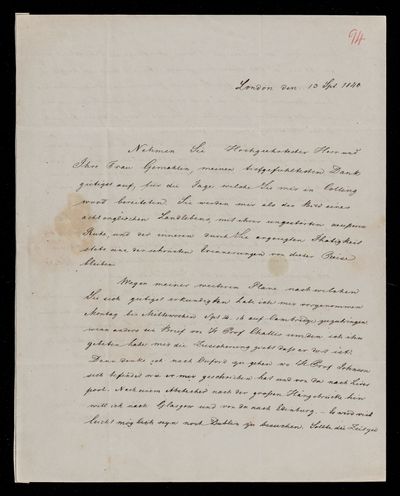 94
London den 13 Spt 1840
Nehmen Sie Hochgeehrtester Herr und
Ihre Frau Gemahlin, meinen tiefgefühltesten Dank
gütigst auf, für die Tage welche Sie mir in Colling
wood bereiteten. Sie werden mir als das Bild eines
acht englischen Landlebens, mit ihrer ungestörten äussern
Ruhe, und der inneren durch Sie angeregten Thätigkeit
stets eine der schönsten Erinnerungen von dieser Reise
bleiben
Wegen meiner weiteren Plane nach welchen
Sie sich gütigst erkundigten habe ich mir vorgenommen
Montag bis Mittwochen Spt 16 auf Cambridge zuzubringen
wenn anders ein Brief von H Prof Challis um den ich ihn
gebeten habe mir die Zusicherung giebt daß er dort ist.
Dann denke ich nach Oxford zu gehen wo H. Prof Johnson
sich befindet wie er mir geschrieben hat und von da nach Liver
pool. Nach einem Abstecher nach der großen Hängebrücke hin
will ich nach Glasgow und von da nach Edinburg. – Es wird viel
leicht möglich seyn noch Dublin zu besuchen. Sollte die Zeit zu